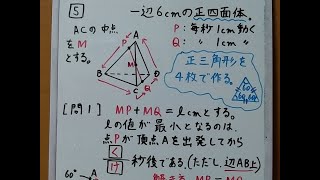 5 一辺6cmの正四面体。
ACの中点
をM
とする。
P:毎秒1cm動く
Q: 〃 1cm 〃
正三角形を
4枚で作る。
A
P
M
Q
B
D
C
60°
60° 60°
[問1] MP+MQ=lcmとする。
lの値が最小となるのは、
点Pが頂点Aを出発してから
く
け
秒後である。(ただし、辺AB上)
60° A